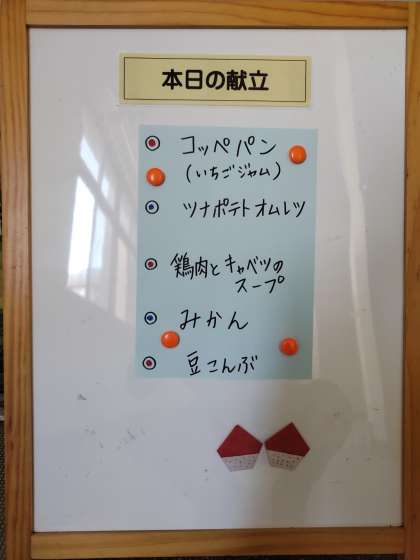 本日の献立
コッペパン
(いちごジャム)
ツナポテトオムレツ
鶏肉とキャベツの
スープ
みかん
豆こんぶ